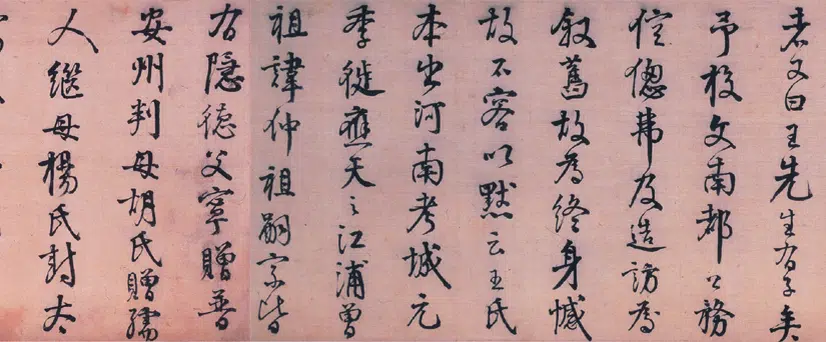 文曰王先生有子矣
予校文南都公務
倥傯弗及造訪為
敘舊故為終身憾
故不容以默云王氏
本出河南考城元
季徙應天之江浦曾
祖諱仲祖嗣宗皆
有隱德父寧贈普
安州判母胡氏贈孺
人繼母楊氏封太